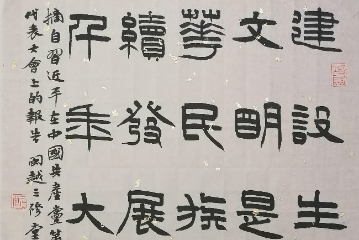 建設生
文明是
華民族
續發展
千年大
摘自習近平在中國共產黨第
代表大會上的報告